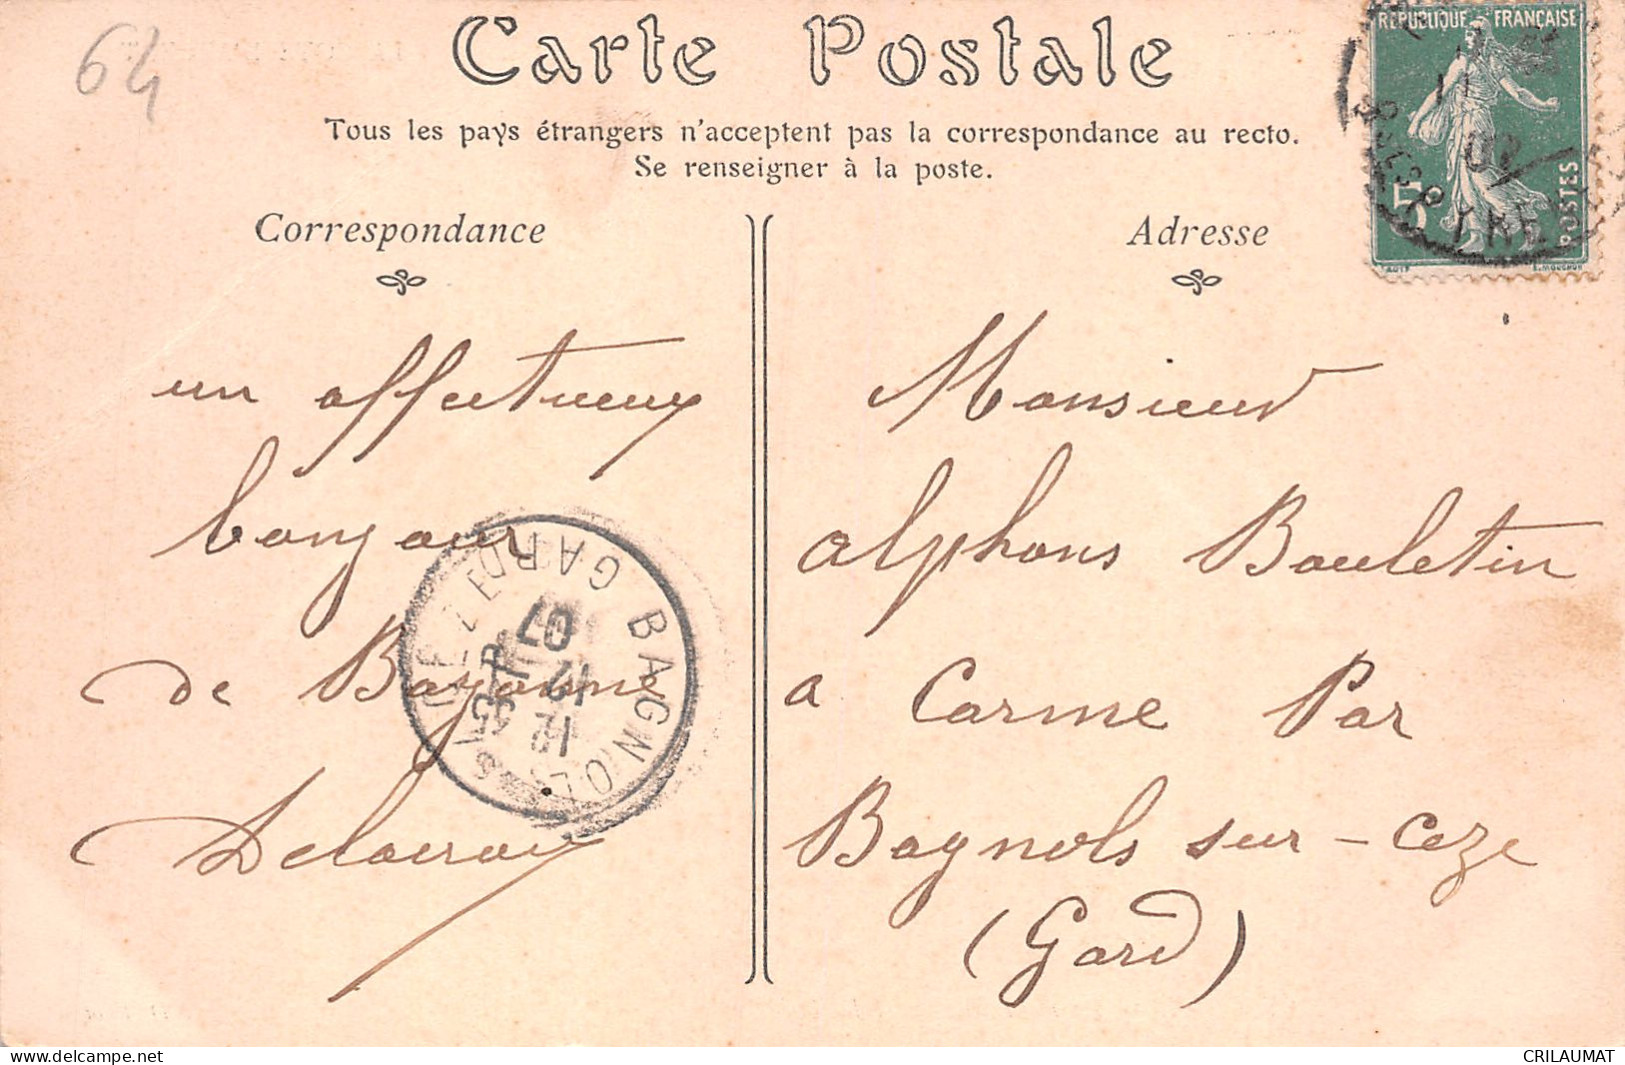 64
Carte Postale
Tous les pays étrangers n'acceptent pas la correspondance au recto.
Se renseigner à la poste.
RÉPUBLIQUE FRANÇAISE
5
POSTES
E. MOUCHON
Correspondance
un affectueux
bonjour
de Bayonne
Delacroix
BAGNOLS
GARD
07
12
12
Adresse
Monsieur
alphons Bouletin
a Carme Par
Bagnols sur - Ceze
(Gard)
CRILAUMAT
www.delcampe.net